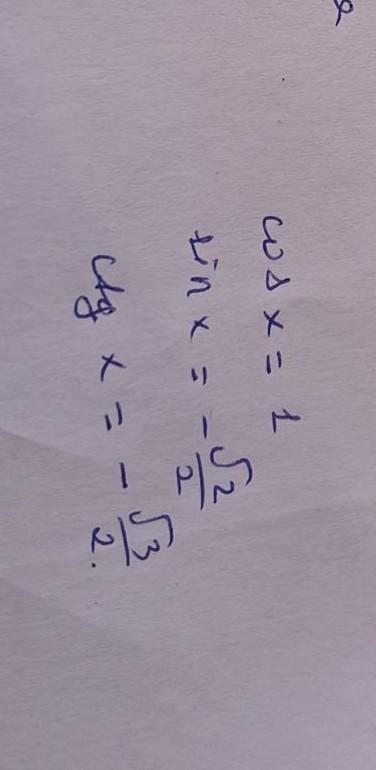 cos x = 1
sin x = -√2/2
ctg x = -√3/2.